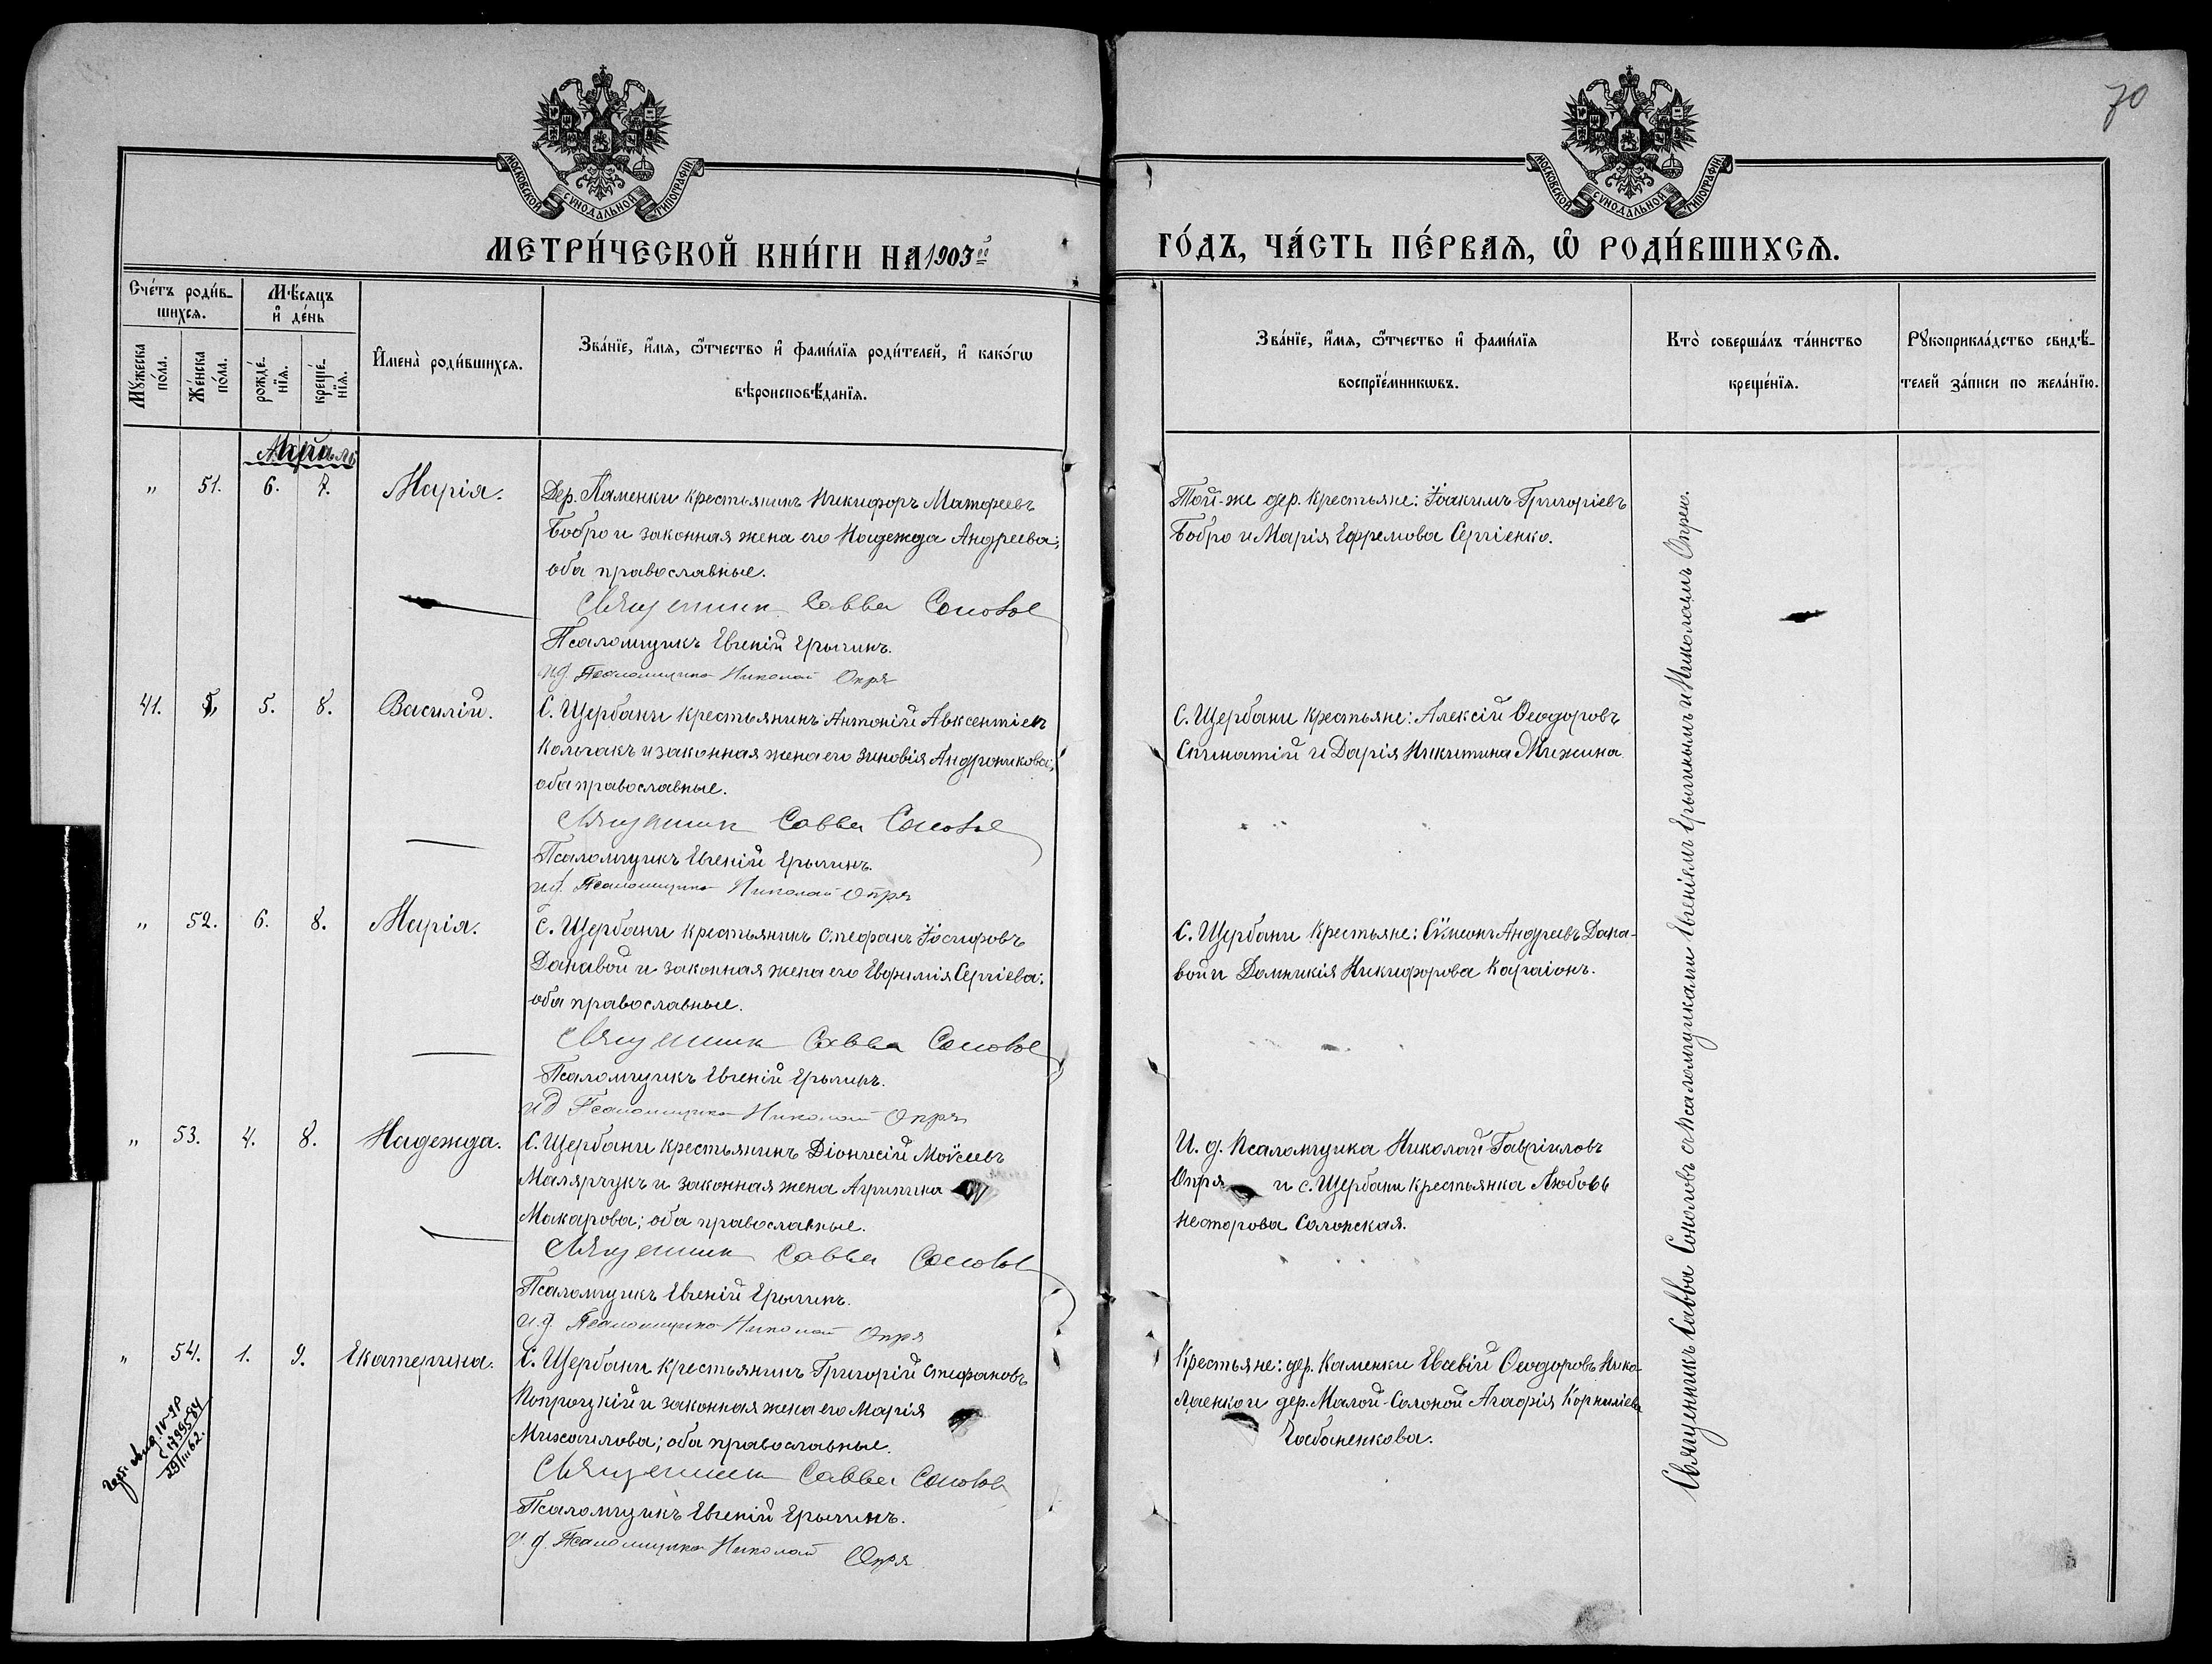 70
МОСКОВСКОЙ СУНОДАЛЬНОЙ ТИПОГРАФІИ
МОСКОВСКОЙ СУНОДАЛЬНОЙ ТИПОГРАФІИ
МЕТРИ́ЧЕСКОЙ КНИ́ГИ НА 1903й
ГО́ДЪ, ЧА́СТЬ ПЕ́РВАѦ, Ѡ РОДИ́ВШИХСѦ.
Сче́тъ роди́в-
шихсѧ.
Мꙋ́жеска по́ла.
Же́нска по́ла.
Мѣ́сѧцъ
и҆ де́нь
рожде́-
нїѧ.
креще́-
нїѧ.
И҆мена̀ роди́вшихсѧ.
Зва́нїе, и҆́мѧ, ѻ҆́тчество и҆ фамилїѧ роди́телей, и҆ како́гѡ
вѣроисповѣ́данїѧ.
Зва́нїе, и҆́мѧ, ѻ҆́тчество и҆ фами́лїѧ
воспрїе́мникѡвъ.
Кто̀ соверша́лъ та́инство
креще́нїѧ.
Рꙋкоприкла́дство свидѣ́-
телей за́писи по жела́нїю.
Апрѣль
„ 51. 6. 7. Марія.
Дер. Каменки крестьянинъ Никифоръ Матфеевъ
Бобро и законная жена его Надежда Андреева;
оба православные.
Священник Савва Соколов
Псаломщикъ Евгеній Ерыгинъ.
и.д. Псаломщика Николай Опря
Той-же дер. крестьяне: Іоакимъ Григоріевъ
Бобро и Марія Ефремова Сергіенко.
41. „ 5. 8. Василій.
С. Щербани крестьянинъ Антоній Авксентіевъ
Колчакъ и законная жена его Зиновія Андроникова;
оба православные.
Священник Савва Соколов
Псаломщикъ Евгеній Ерыгинъ.
и.д. Псаломщика Николай Опря
С. Щербани крестьяне: Алексій Ѳеодоровъ
и Дарія Никитина Мижина
„ 52. 6. 8. Марія.
С. Щербани крестьянинъ Стефанъ Іосифовъ
Данавой и законная жена его Евфимія Сергіева:
оба православные.
Священник Савва Соколов
Псаломщикъ Евгеній Ерыгинъ.
и д Псаломщика Николай Опря
С. Щербани крестьяне: Сѵмеонъ Андреевъ Дана-
вой и Домникія Никифорова Караіонъ.
„ 53. 4. 8. Надежда.
С. Щербани крестьянинъ Діонисій Моѵсеевъ
Малярчукъ и законная жена Агрипина
Макарова; оба православные.
Священник Савва Соколов
Псаломщикъ Евгеній Ерыгинъ.
и.д. Псаломщика Николай Опря
И. д. Псаломщика Николай Гавріиловъ
Опря и с. Щербани крестьянка Любовь
Несторова Солонская.
„ 54. 1. 9. Екатерина.
С. Щербани крестьянинъ Григорій Стефановъ
Попроцкій и законная жена его Марія
Михаилова; оба православные.
Священник Савва Соколов
Псаломщикъ Евгеній Ерыгинъ.
и.д. Псаломщика Николай Опря
Крестьяне: дер. Каменки Евсевій Ѳеодоровъ Нико-
лаенко и дер. Малой-Солоной Агафія Корниліева
IV-ЯР
1799584
29/III 62.
Священникъ Савва Соколовъ съ псаломщиками Евгеніемъ Ерыгинымъ и Николаемъ Опрею.